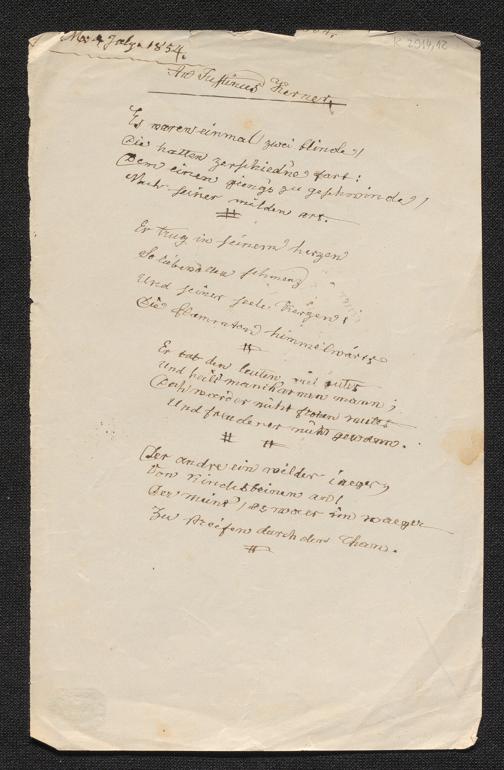 1854.
K 2914,12
An Justinus Kerner.
Es waren einmal zwei blinde,
Die hatten zerschiedne fart:
Dem einen gieng's zu geschwinde,
Nach seiner milden art.
#
Er trug in seinem herzen
So liebend den schmerz
Und seiner seele kerzen,
Die flammten himmelwärts
#
Er tat den leuten viel gutes
Und heilt manch armen mann;
Doch werder nicht frohen mutes
Und freude er nicht gewann.
# #
Der andre ein wilder iaeger,
Von kindesbeinen an!
Der meint', es waer
Zu streifen durch den
#